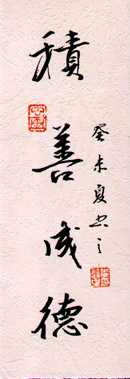 積善成德
癸未夏